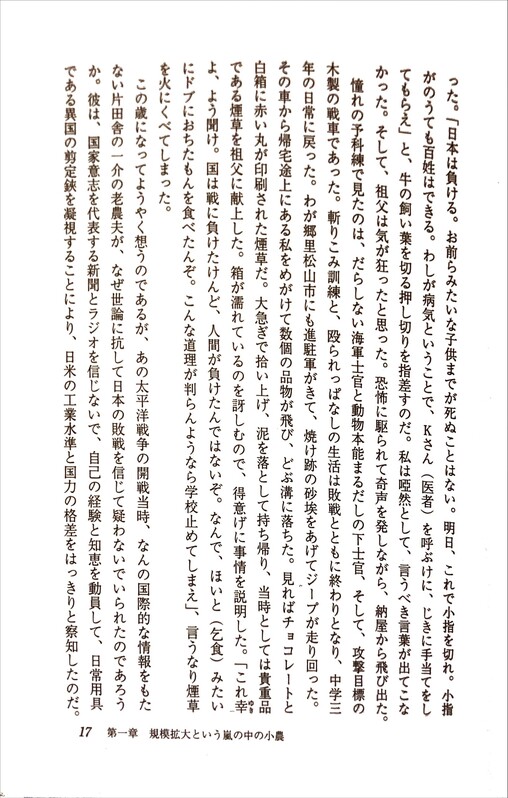 った。「日本は負ける。お前らみたいな子供までが死ぬことはない。明日、これで小指を切れ。小指
がのうても百姓はできる。わしが病気ということで、Kさん（医者）を呼ぶけに、じきに手当てをし
てもらえ」と、牛の飼い葉を切る押し切りを指差すのだ。私は啞然として、言うべき言葉が出てこな
かった。そして、祖父は気が狂ったと思った。恐怖に駆られて奇声を発しながら、納屋から飛び出た。
憧れの予科練で見たのは、だらしない海軍士官と動物本能まるだしの下士官、そして、攻撃目標の
木製の戦車であった。斬りこみ訓練と、殴られっぱなしの生活は敗戦とともに終わりとなり、中学三
年の日常に戻った。わが郷里松山市にも進駐軍がきて、焼け跡の砂埃をあげてジープが走り回った。
その車から帰宅途上にある私をめがけて数個の品物が飛び、どぶ溝に落ちた。見ればチョコレートと
白箱に赤い丸が印刷された煙草だ。大急ぎで拾い上げ、泥を落として持ち帰り、当時としては貴重品
である煙草を祖父に献上した。箱が濡れているのを訝しむので、得意げに事情を説明した。「これ幸
よ、よう聞け。国は戦に負けたけんど、人間が負けたんではないぞ。なんで、ほいと（乞食）みたい
にドブにおちたもんを食べたんぞ。こんな道理が判らんようなら学校止めてしまえ」、言うなり煙草
を火にくべてしまった。
この歳になってようやく想うのであるが、あの太平洋戦争の開戦当時、なんの国際的な情報をもた
ない片田舎の一介の老農夫が、なぜ世論に抗して日本の敗戦を信じて疑わないでいられたのであろう
か。彼は、国家意志を代表する新聞とラジオを信じないで、自己の経験と知恵を動員して、日常用具
である異国の剪定鋏を凝視することにより、日米の工業水準と国力の格差をはっきりと察知したのだ。
17 第一章 規模拡大という嵐の中の小農